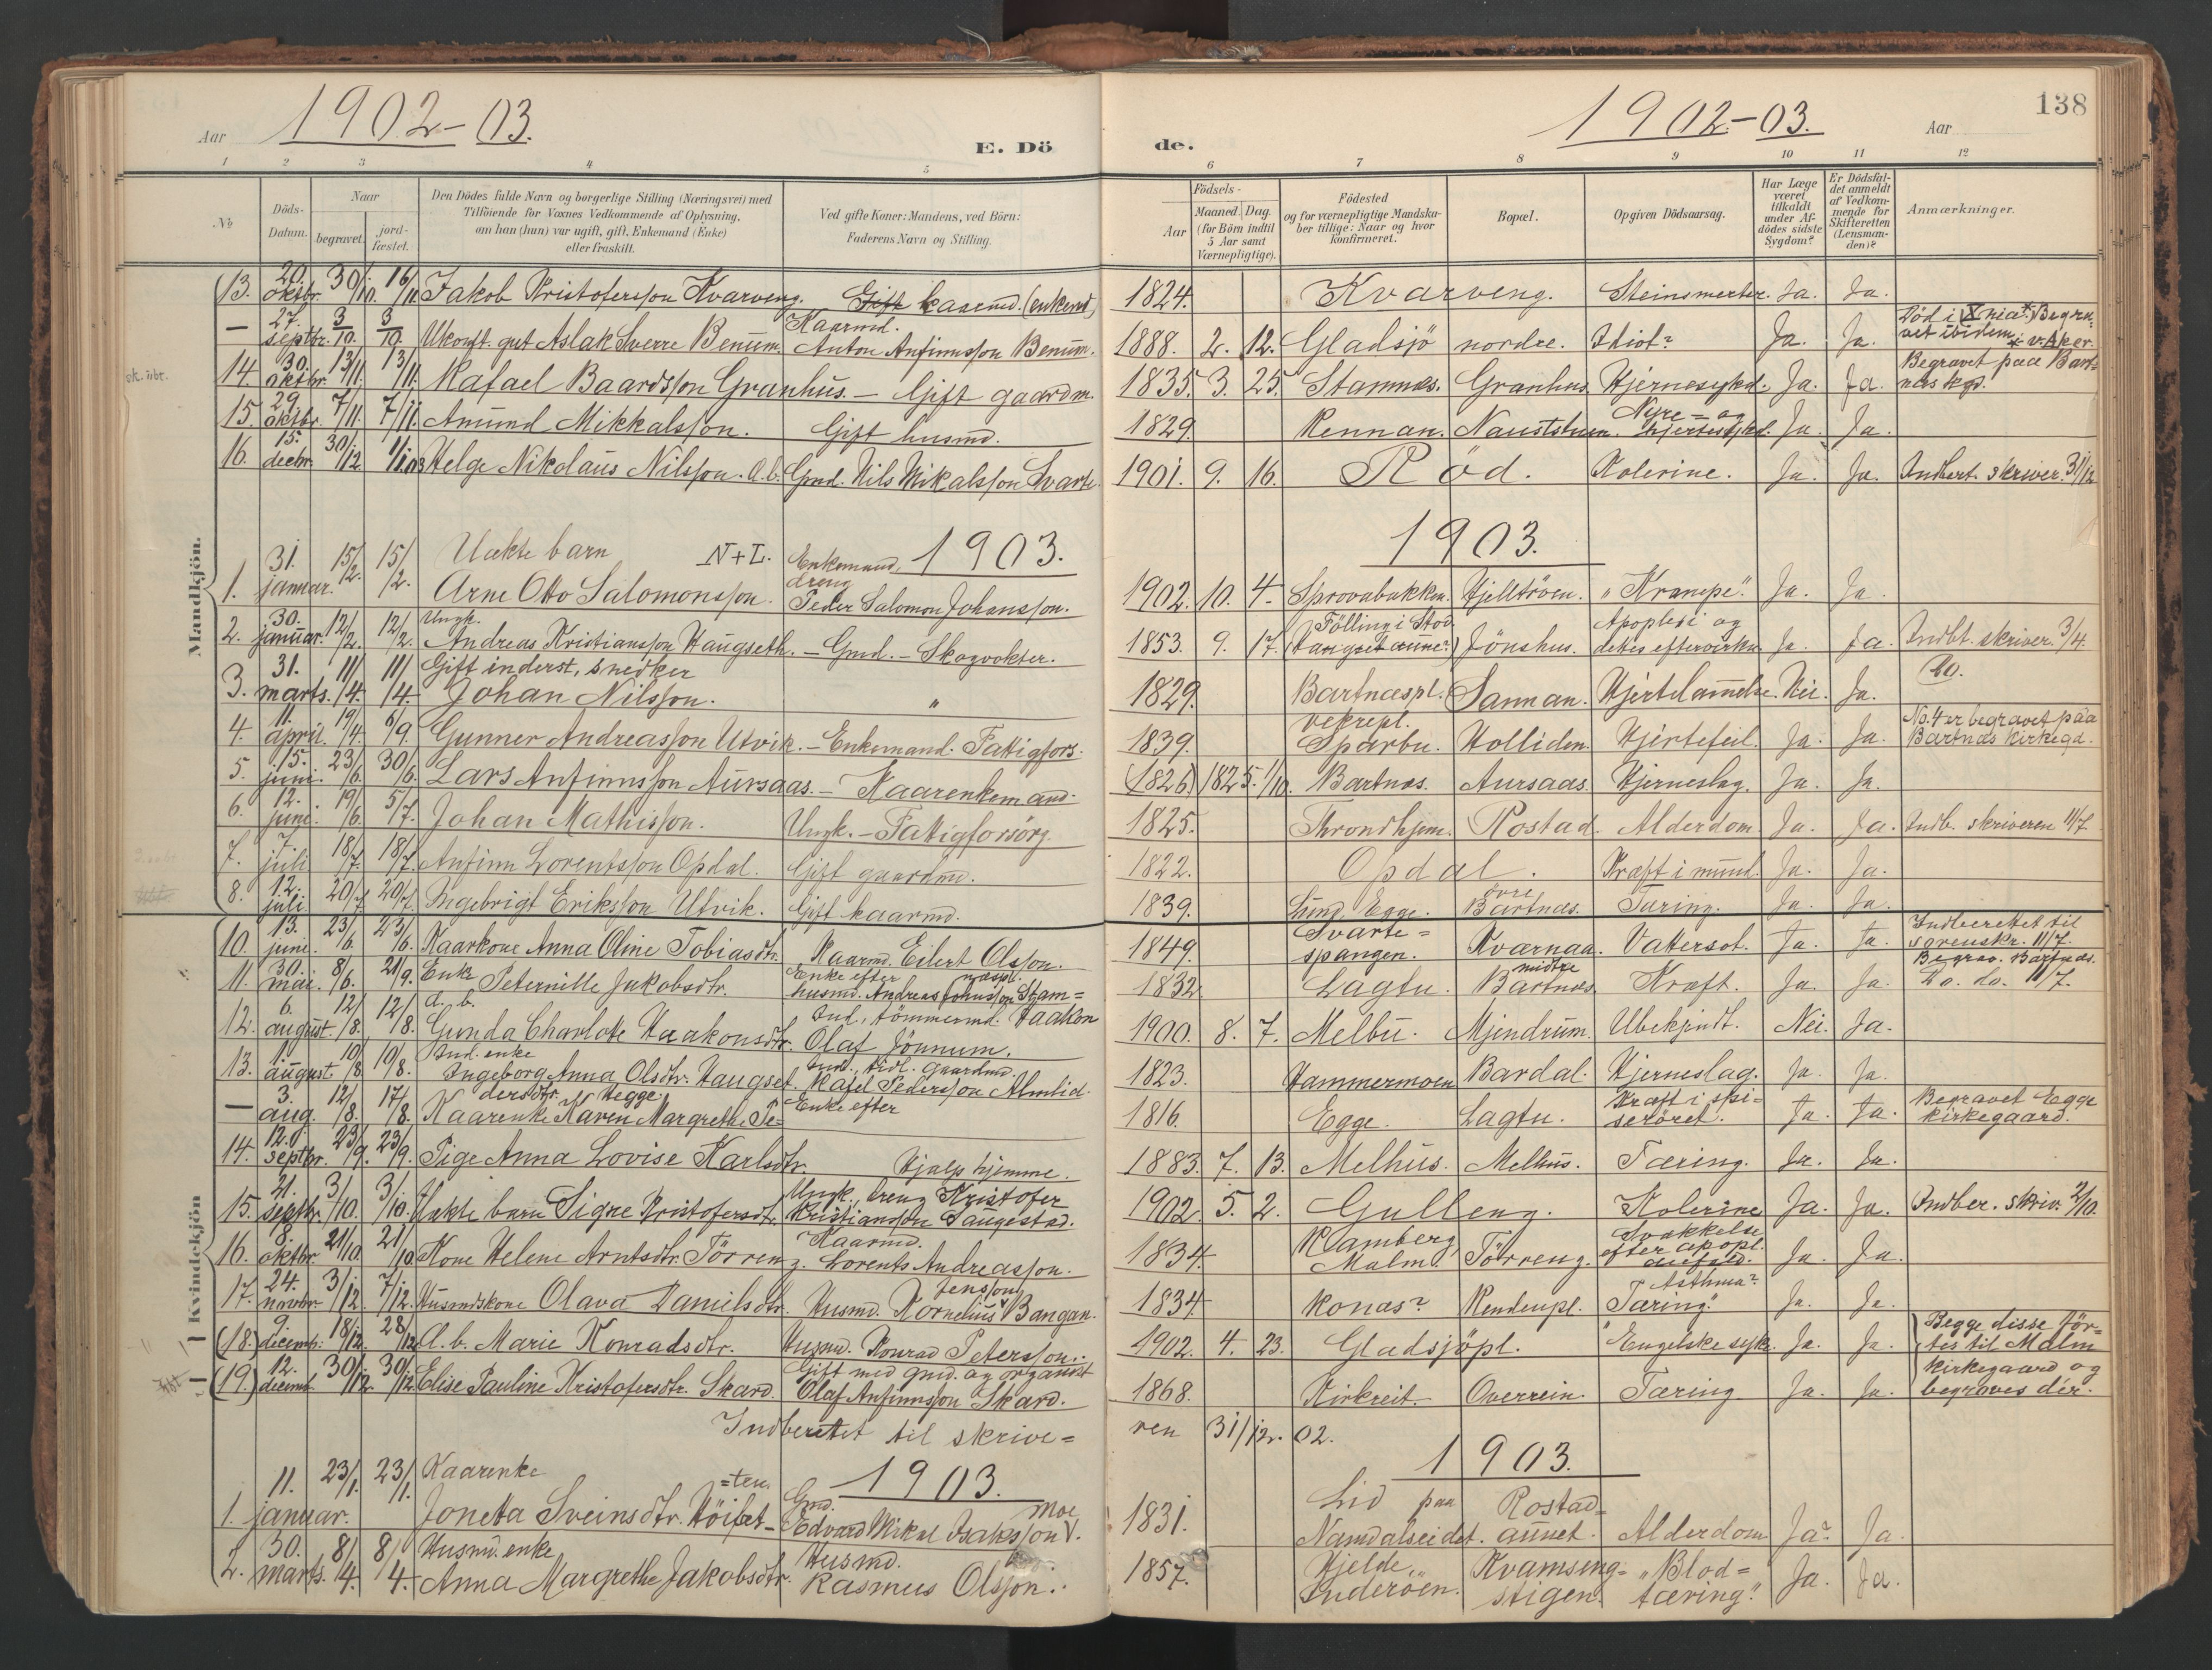 138
Aar 1902-03. E. Dö de. 1902-03. Aar
1 2 3 4 5 6 7 8 9 10 11 12
№ Döds-Datum. Naar begravet. jord-fæstet. Den Dödes fulde Navn og borgerlige Stilling (Næringsvei) med Tilföiende for Voxnes Vedkommende af Oplysning, om han (hun) var ugift, gift, Enkemand (Enke) eller fraskilt. Ved gifte Koner: Mandens, ved Börn: Faderens Navn og Stilling. Födsels- Aar Maaned. Dag. (for Börn indtil 5 Aar samt Værnepligtige). Födested og for værnepligtige Mandskaber tillige: Naar og hvor konfirmeret. Bopæl. Opgiven Dödsaarsag. Har Læge været tilkaldt under Afdödes sidste Sygdom? Er Dödsfaldet anmeldt af Vedkommende for Skifteretten (Lensmanden)? Anmærkninger.
Mandkjön.
13. 20. oktbr. 30/10. 16/11. Jakob Kristofersson Kvarveng. Gift kaarmd. (enkemd) 1824. Kvarveng. Steinsmerter. Ja. Ja.
— 27. septbr. 3/10. 3/10. Ukonft. gut Aslak Sverre Benum. Kaarmd. Anton Anfinnsson Benum. 1888. 2. 12. Gladsjö nordre. Idiot? Ja. Ja. Död i Xnia* Begravet ibidem. * v. Aker.
14. 30. oktbr. 13/11. 13/11. Rafael Baardsson Granhus. — Gift gaardm. 1835. 3. 25. Stamnes. Granhus. Hjernesykd. Ja. Ja. Begravet paa Bartnes kgd.
15. 29. oktbr. 7/11. 7/11. Amund Mikkalsson. Gift husmd. 1829. Rennan. Nauststuen. Nyre- og hjertesykd. Ja. Ja.
16. 15. decbr. 30/12. 1/1.03 Helge Nikolaus Nilsson. a.b. Gmd. Nils Mikalsson Svarte. 1901. 9. 16. Röd. Kolerine. Ja. Ja. Indbert. skriver. 31/12
1903. 1903.
1. 31. januar. 15/2. 15/2. Uekte barn N+L. Arne Otto Salomonsson. Enkemand, dreng Peder Salomon Johansson. 1902. 10. 4. Sprovabakken. Hjelltröen. "Krampe". Ja. Ja.
2. 30. januar. 12/2. 12/2. Ungk. Andreas Kristiansson Haugseth. — Gmd. — Skogvokter. 1853. 9. 17. Fölling i Stod (Haugsetaune?) Jönshus. Apopleksi og dets eftervirkn. Ja. Ja. Indbt. skriver. 3/4.
3. 31. marts. 11/4. 11/4. Gift inderst, snedker Johan Nilsson. " 1829. Bartnespl. Sannan. Hjertelammelse. Nei. Ja. Do.
4. 11. april. 19/4. 6/9. Gunner Andreasson Utvik. — Enkemand. Fattigfors. 1839. Sparbu. Holliden. Hjertefeil. Ja. Ja. No. 4 er begravet paa Bartnes kirkegd.
5. 15. juni. 23/6. 30/6. Lars Anfinnsson Aursaas. — Kaarenkemand. (1826) 1825. 1/10. Bartnes. Aursaas. Hjerneslag. Ja. Ja.
6. 12. juni. 19/6. 5/7. Johan Mathisson. Ungk. — Fattigforsörg. 1825. Throndhjem. Rostad. Alderdom. Ja. Ja. Indb. skriveren 11/7.
7. 7. juli 18/7. 18/7. Anfinn Lorentsson Opdal. Gift gaardmd. 1822. Opdal. Kræft i mund. Ja. Ja.
8. 12. juli. 20/7. 20/7. Ingebrigt Eriksson Utvik. Gift kaarmd. 1839. Lund. Egge. övre Bartnæs. Tæring. Ja. Ja.
Kvindekjön
10. 13. juni. 23/6. 23/6. Kaarkone Anna Oline Tobiasdtr. Kaarmd. Eilert Olsson. 1849. Svarte=spangen. Kvarnaa. Vattersot. Ja. Ja. Indberettet til sorenskr. 11/7.
11. 30. mai. 8/6. 21/9. Enke Peternille Jakobsdtr. Enke efter husmd. Andreas Johnsson Stam=næspl. 1832 Lagtu. midtre Bartnes. Kræft. Ja. Ja. Begrav. Bartnæs. Do. do. 11/7.
12. 6. august. 12/8. 12/8. a. b. Gunda Charlotte Haakonsdtr. Ind., tömmermd. Haakon Olaf Jönnum. 1900. 8. 7. Melbu. Mjendrum. Ubekjendt. Nei. Ja.
13. 1. august. 10/8. 10/8. Ind. enke Ingeborg Anna Olsdtr. Haugset. Ind., tidl. gaardmd. Rafel Pedersson Almlid. 1823. Hammermoen Bardal. Hjerneslag. Ja. Ja.
— 3. aug. 12/8. 17/8. Kaarenke Karen Margrethe Pe=dersdtr. Hegge. Enke efter 1816. Egge. Lagtu. Kræft i spi=seröret. Ja. Ja. Begravet Egge kirkegaard.
14. 12. septbr. 23/9. 23/9. Pige Anna Lovise Karlsdtr. Hjalp hjemme. 1883. 7. 13. Melhus. Melhus. Tæring. Ja. Ja.
15. 21. septbr. 3/10. 3/10. Uekte barn Signe Kristofersdtr. Ungk., dreng Kristofer Kristiansson Saugestad. 1902. 5. 2. Gulleng. Kolerine Ja. Ja. Indber. skriv. 2/10.
16. 8. oktbr. 21/10. 21/10. Kone Helene Arntsdtr. Törreng. Kaarmd. Lorents Andreasson. 1834. Kamberg, Malm. Törreng. Svakkelse efter apopl. anfald. Ja. Ja.
17. 24. novbr. 3/12. 7/12. Husmdskone Olava Danielsdtr. Husmd. Kornelius Jensson Bangan. 1834. Konas? Rendenpl. Asthma? Tæring". Ja. Ja.
(18.) 9. decemb. 18/12. 28/12. a. b. Marie Konradsdtr. Husmd. Konrad Petersson. 1902. 4. 23. Gladsjöpl. Engelske syke. Ja. Ja. Begge disse för=tes til Malm kirkegaard og begraves dér.
(19.) 12. decemb. 30/12. 30/12. Elise Pauline Kristofersdtr. Skard. Gift med gmd. og organist Olaf Anfinnsson Skard. 1868. Kirkreit. Overrein. Tæring. Ja. Ja.
Indberettet til skrive=ren 31/12. 02.
1903. 1903.
1. 11. januar. 23/1. 23/1. Kaarenke Joneta Sveinsdtr. Höiset=ten Gmd. Edvard Mikal Isaksson Moe. 1831. Lid paa Namdalseidet. Rostad=aunet. Alderdom Ja? Ja.
2. 30. marts. 8/4. 8/4. Husmd. enke Anna Margrethe Jakobsdtr. Husmd. Rasmus Olsson. 1857. Hjelde, Inderöen. Kvamseng=stigen. "Blod=tæring". Ja. Ja.